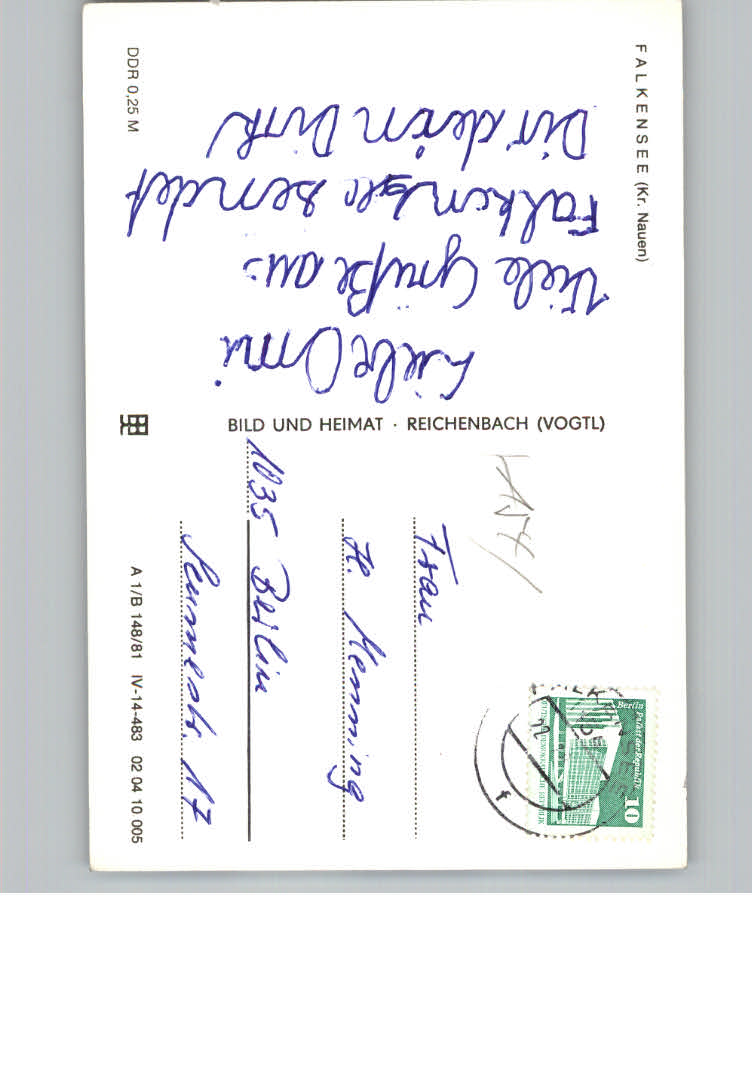 FALKENSEE (Kr. Nauen)
Liebe Omi
Viele Grüße aus
Falkensee sendet
Dir dein Dirk
DDR 0,25 M
BILD UND HEIMAT · REICHENBACH (VOGTL)
Berlin Palast der Republik
10
Frau
H. Hemming
1035 Berlin
17
A 1/B 148/81 IV-14-483 02 04 10 005